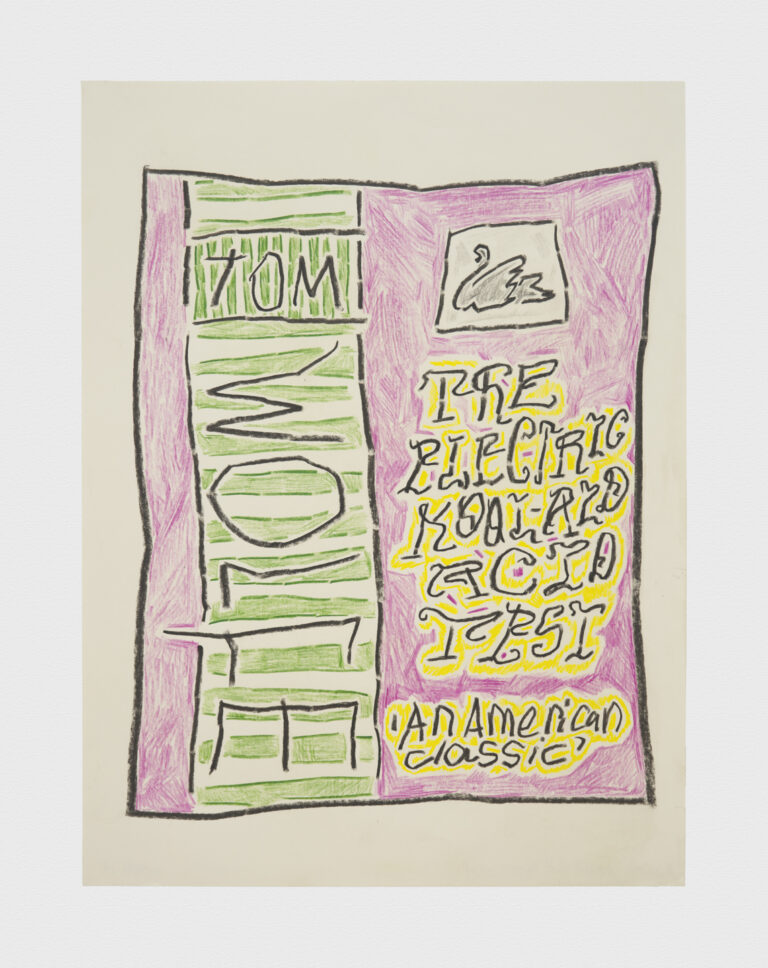 TOM
WOLFE
THE
ELECTRIC
KOOL-AID
ACID
TEST
'An American
classic'